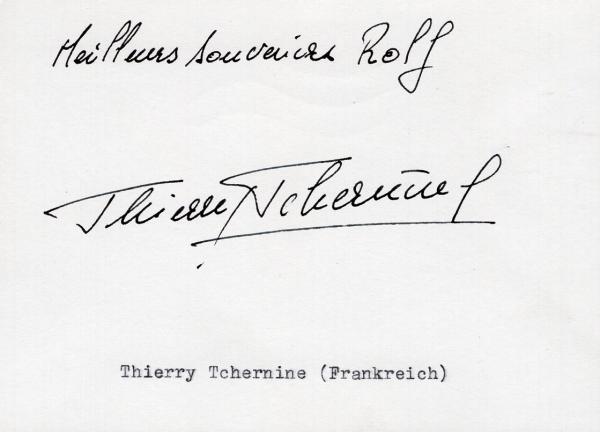 Meilleurs souvenirs Rolf
Thierry Tchernine
Thierry Tchernine (Frankreich)